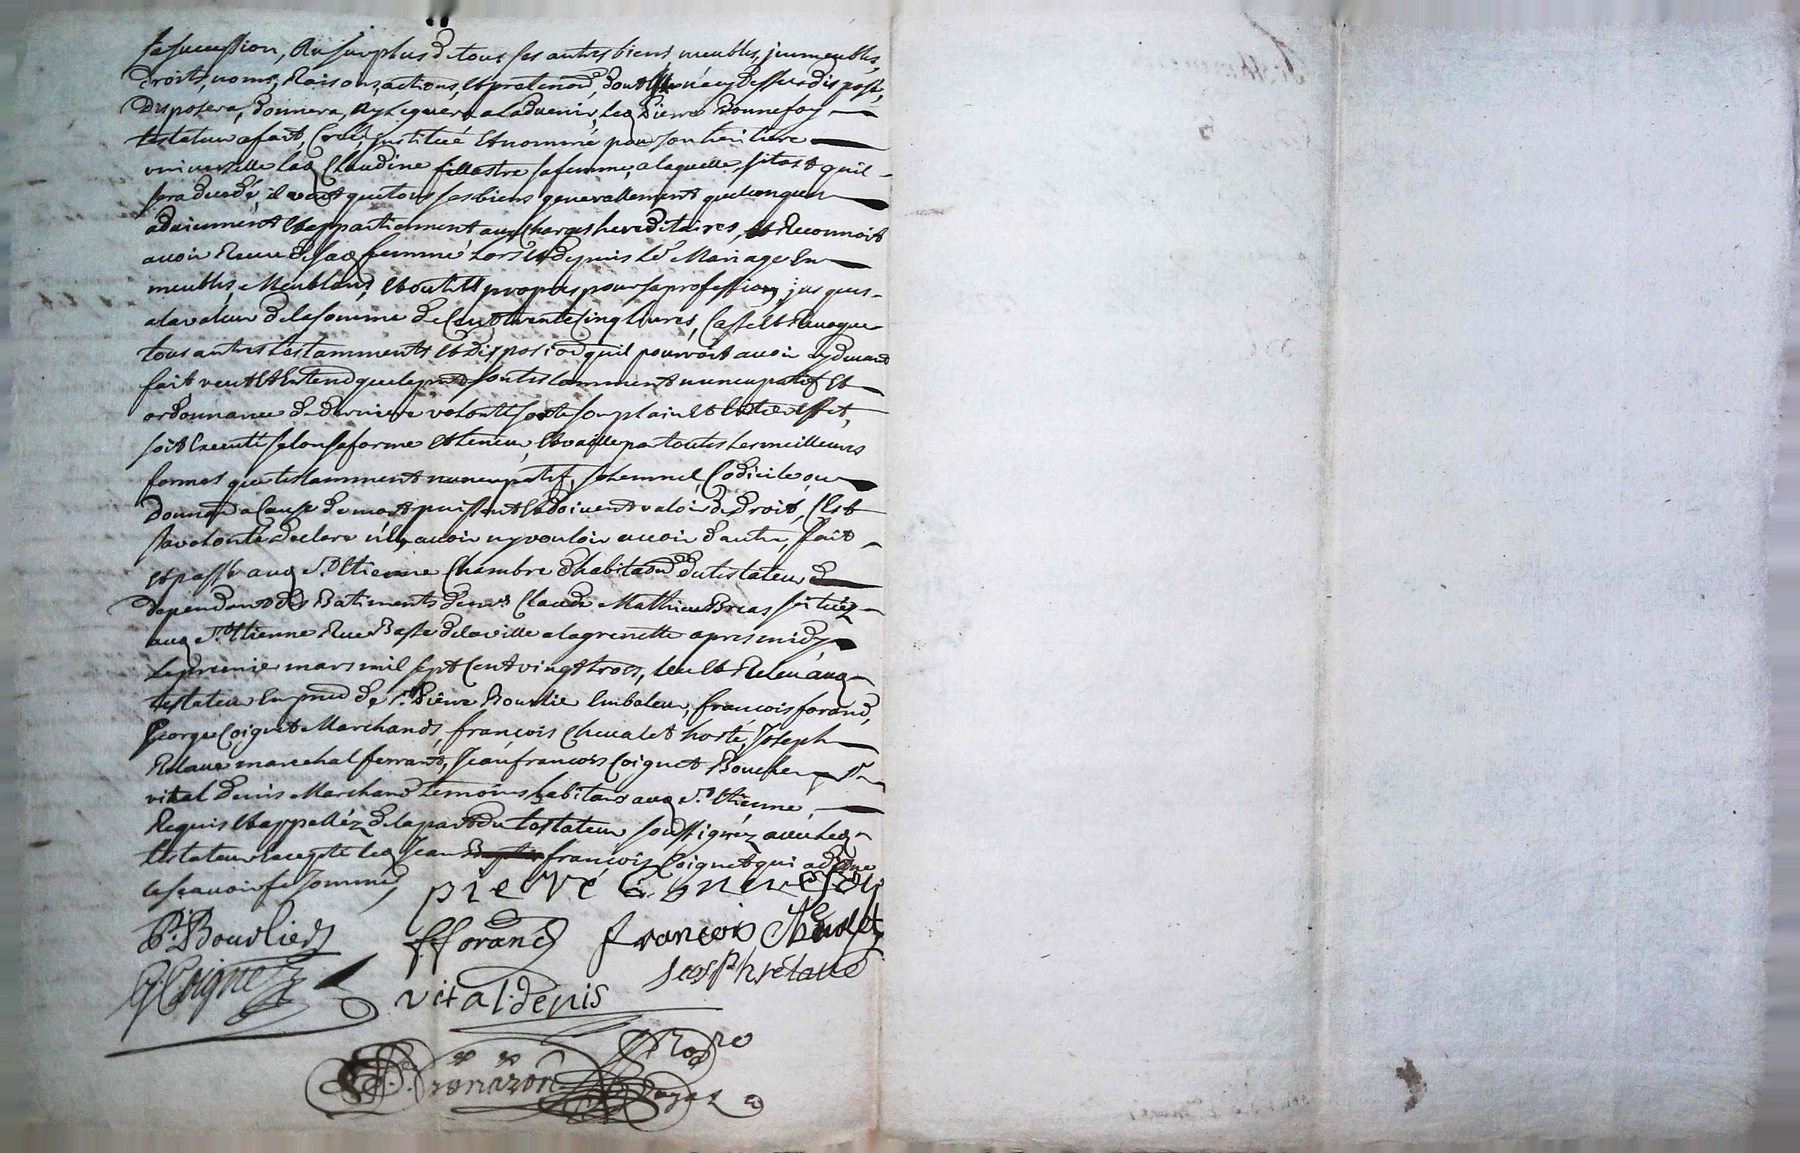 sa succession, Au surplus de tous ses autres biens meubles, jmmeubles,
droits, noms, Raisons, actions, et pretenõns, dont il n'a cy dessus disposé,
disposera, donnera, ny leguera a l'advenir, led. Pierre Bonnefoy
testateur a fait, Créé, jnstitué et nommé pour son heritiere
universelle lad. Claudine fillastre sa femme, a laquelle sitost quil
sera decedé, il veut que tous ses biens generallement quelconques
adviennent et appartiennent aux charges hereditaires, et Reconnoit
avoir Receu de sad. femme lors et depuis led. Mariage En
meubles, Meublans, et outils propres pour sa profession jusques
a la valeur de la somme de Cent trente Cinq livres, Casse et Revoque
tous autres testamments et disposiõns quil pourroit avoir cy devant
fait veut et Entend que le pñt son testamment nuncupatif et
ordonnance de derniere volonté sorte son plain et Entier effet,
soit Executé selon sa forme et teneur, et vaille par toutes les meilleures
formes que testamment nuncupatif, solemnel, Codicile ou
donnaõn a Cause de mort puissent et doivent valoir de droit, C'est
sa volonté declare n'en avoir ny vouloir avoir d'autre, fait
et passé aud. St. Etienne Chambre d'habitaõn dud. testateur
dependant des Batiments de mr. Claude Mathieu Breas situéz
aud. St. Etienne Rue Basse de la ville a la grenette apres midy
le premier mars mil sept Cent vingt trois, leu et Releu aud.
testateur En pñce de sr. Pierre Bourlier Embaleur, francois forand,
George Coignet Marchands, françois Chevalet hoste, Joseph
Relave marechal ferrant, Jean francois Coignet Boucher, sr.
vital denis Marchand temoins habitans aud. St. Etienne
Requis et appelléz de la part du testateur soussignéz avec led.
testateur Excepté led. Jean françois Coignet qui a déclaré ne
le scavoir fe sommés
pierre bonnefoy
P. Bourlier fforand francois Chevalet
G Coignet vital.denis Joseph relave